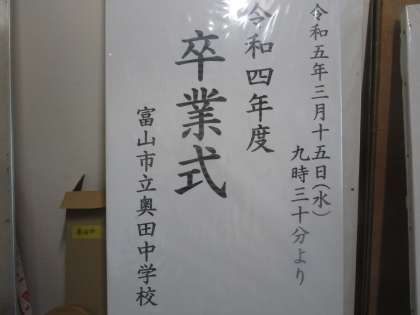 令和五年三月十五日(水)
九時三十分より
令和四年度
卒業式
富山市立奥田中学校